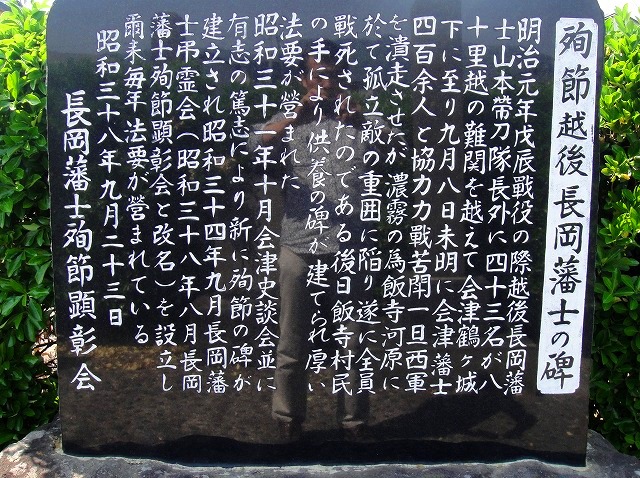 殉節越後長岡藩士の碑
明治元年戊辰戦役の際越後長岡藩
士山本帶刀隊長外に四十三名が八
十里越の難関を越えて会津鶴ヶ城
下に至り九月八日未明に会津藩士
四百余人と協力力戦苦闘一旦西軍
を潰走させたが濃霧の為飯寺河原に
於て孤立敵の重囲に陥り遂に全員
戦死されたのである後日飯寺村民
の手により供養の碑が建てられ厚い
法要が営まれた
昭和三十一年十月会津史談会並に
有志の篤志により新に殉節の碑が
建立され昭和三十四年九月長岡藩
士弔霊会(昭和三十八年八月長岡
藩士殉節顕彰会と改名)を設立し
爾来毎年法要が営まれている
昭和三十八年九月二十三日
長岡藩士殉節顕彰会